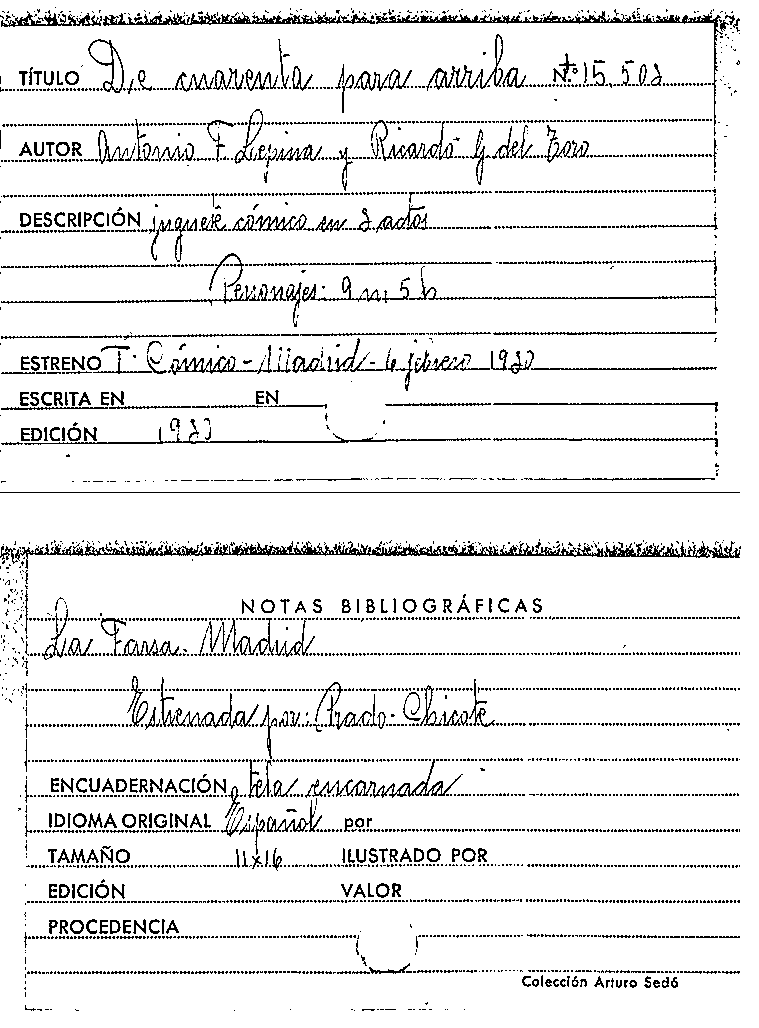 TÍTULO De cuarenta para arriba Nº 15.502
AUTOR Antonio F Lepina y Ricardo G del Toro
DESCRIPCIÓN juguete cómico en 2 actos
Personajes: 9 m, 5 h
ESTRENO T. Cómico - Madrid - 6 febrero
ESCRITA EN EN
EDICIÓN
NOTAS BIBLIOGRÁFICAS
La Farsa. Madrid
Estrenada por: Prado-Chicote
ENCUADERNACIÓN tela encarnada
IDIOMA ORIGINAL Español por
TAMAÑO 11x16 ILUSTRADO POR
EDICIÓN VALOR
PROCEDENCIA
Colección Arturo Sedó